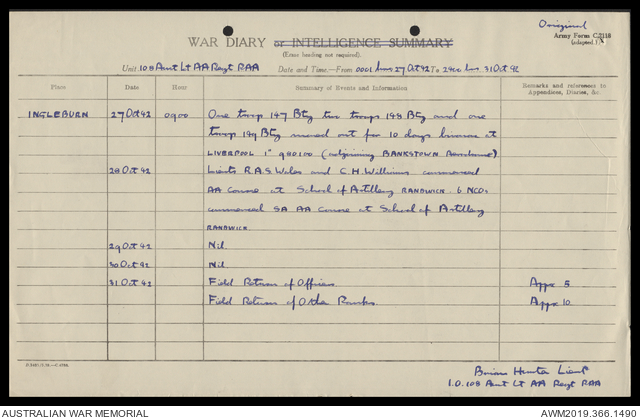 Original
Army Form C.2118
(adapted.)
WAR DIARY or INTELLIGENCE SUMMARY
(Erase heading not required).
Unit 108 Aust Lt AA Regt RAA Date and Time—From 0001 hrs 27 Oct 42 To 2400 hrs 31 Oct 42
Place Date Hour Summary of Events and Information Remarks and references to Appendices, Diaries, &c.
INGLEBURN 27 Oct 42 0900 One troop 147 Bty two troops 148 Bty and one
troop 149 Bty moved out for 10 days bivouac at
LIVERPOOL 1" 940100 (adjoining BANKSTOWN Aerodrome)
28 Oct 42 Lieuts R.A.S. Wales and C.H. Williams commenced
AA Course at School of Artillery RANDWICK. 6 NCOs
commenced SA AA Course at School of Artillery
RANDWICK
29 Oct 42 Nil.
30 Oct 42 Nil
31 Oct 42 Field Return of Officers. Appx 5
Field Return of Other Ranks. Appx 10
Hunter Lieut
I.O. 108 Aust Lt AA Regt RAA
AUSTRALIAN WAR MEMORIAL AWM2019.366.1490